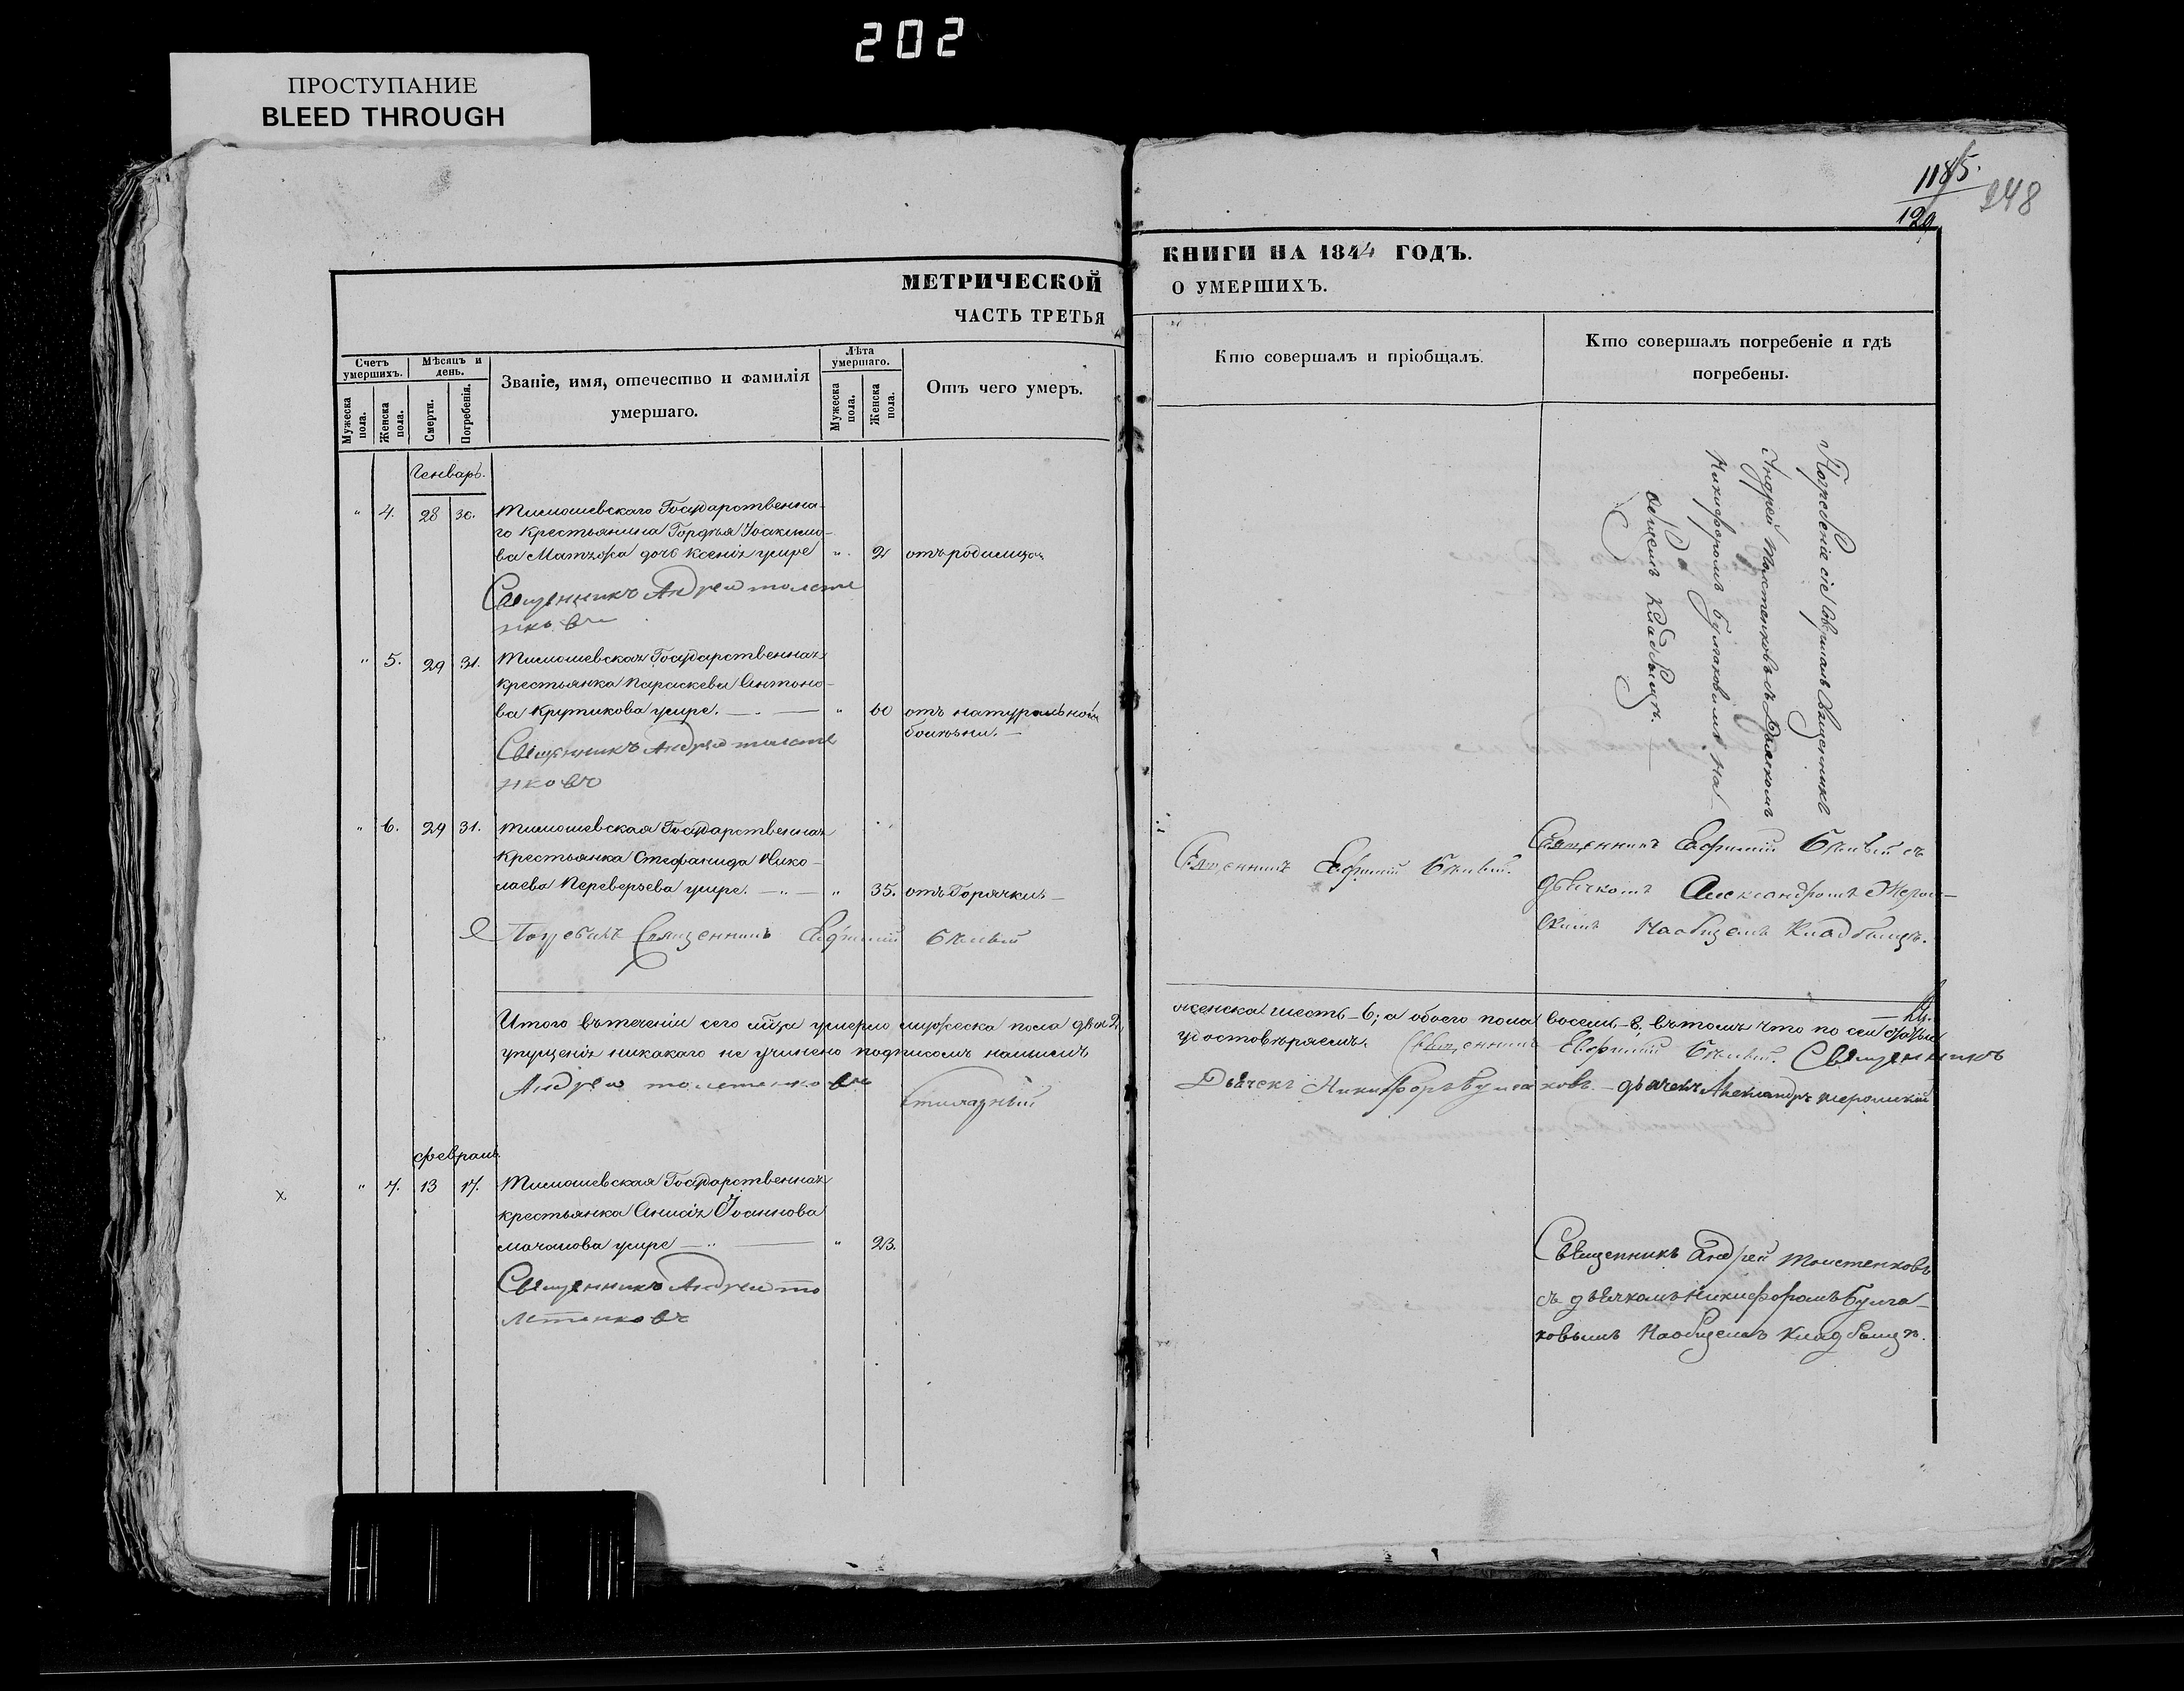 202
ПРОСТУПАНИЕ
BLEED THROUGH
1185.
120
248
МЕТРИЧЕСКОЙ
ЧАСТЬ ТРЕТЬЯ
КНИГИ НА 1844 ГОДЪ.
О УМЕРШИХЪ.
Счетъ умершихъ.
Мужеска пола.
Женска пола.
Мѣсяцъ и день.
Смерти.
Погребенія.
Званіе, имя, отечество и фамилія
умершаго.
Лѣта умершаго.
Мужеска пола.
Женска пола.
Отъ чего умеръ.
Кто совершалъ и пріобщалъ.
Кто совершалъ погребеніе и гдѣ
погребены.
Генварь.
" 4. 28 30. Тимошевскаго Государственна-
го крестьянина Гордѣя Іоакимо-
ва дочь Ксенія умре " 2 отъ родимца
Священникъ Андрей Толсте
нковъ
Погребеніе сіе совершалъ Священникъ
Андрей Толстенковъ съ дьячкомъ
Никифоромъ Булгаковымъ на
общемъ кладбищѣ.
" 5. 29 31. Тимошевская Государственная
крестьянка Параскева Антоно-
ва Крутикова умре. " 60 отъ натуральной
болѣзни.
Священникъ Андрей Толсте
нковъ
" 6. 29 31. Тимошевская Государственная
крестьянка Стефанида Нико-
лаева Переверзева умре. " 35. отъ Горячки
Священникъ Ефимій Бѣлый
Священникъ Ефимій Бѣлый.
Священникъ Ефимій Бѣлый съ
дьячкомъ Александромъ
На общемъ Кладбищѣ.
Итого въ теченіи сего мѣсяца умерло мужеска пола два 2,
женска шесть - 6; а обоего пола восемь - 8. въ томъ что по сей статьи
упущенія никакаго не учинено подписомъ нашимъ
удостовѣряемъ. Священникъ Ефимій Бѣлый. Священникъ
Андрей Толстенковъ
Дьячекъ Никифоръ Булгаковъ. - дьячекъ Александръ
февраль
х " 7. 13 17. Тимошевская Государственная
крестьянка Анисія Іоаннова
умре " 23.
Священникъ Андрей То
лстенковъ
Священникъ Андрей Толстенковъ
съ дьячкомъ Никифоромъ Булга-
ковымъ На общемъ кладбищѣ.